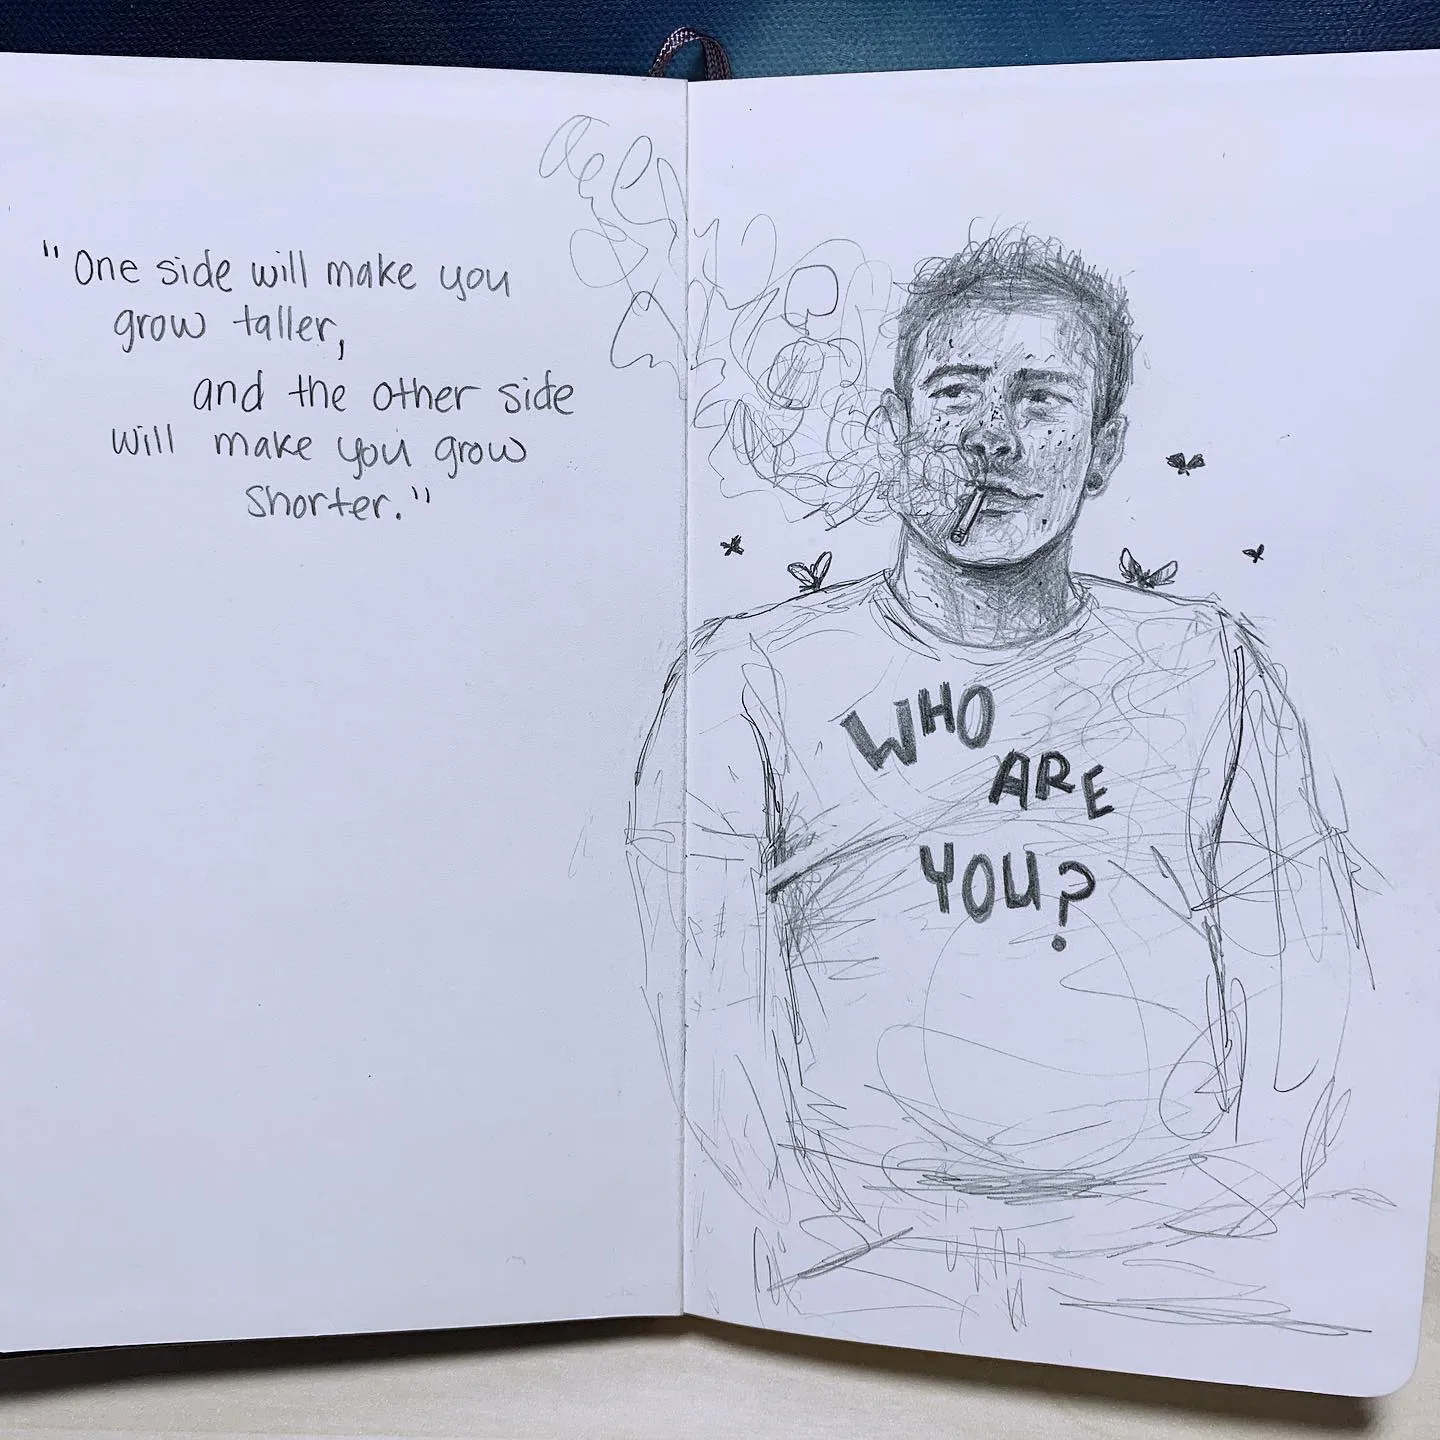 "One side will make you
grow taller,
and the other side
will make you grow
shorter."
WHO
ARE
YOU?